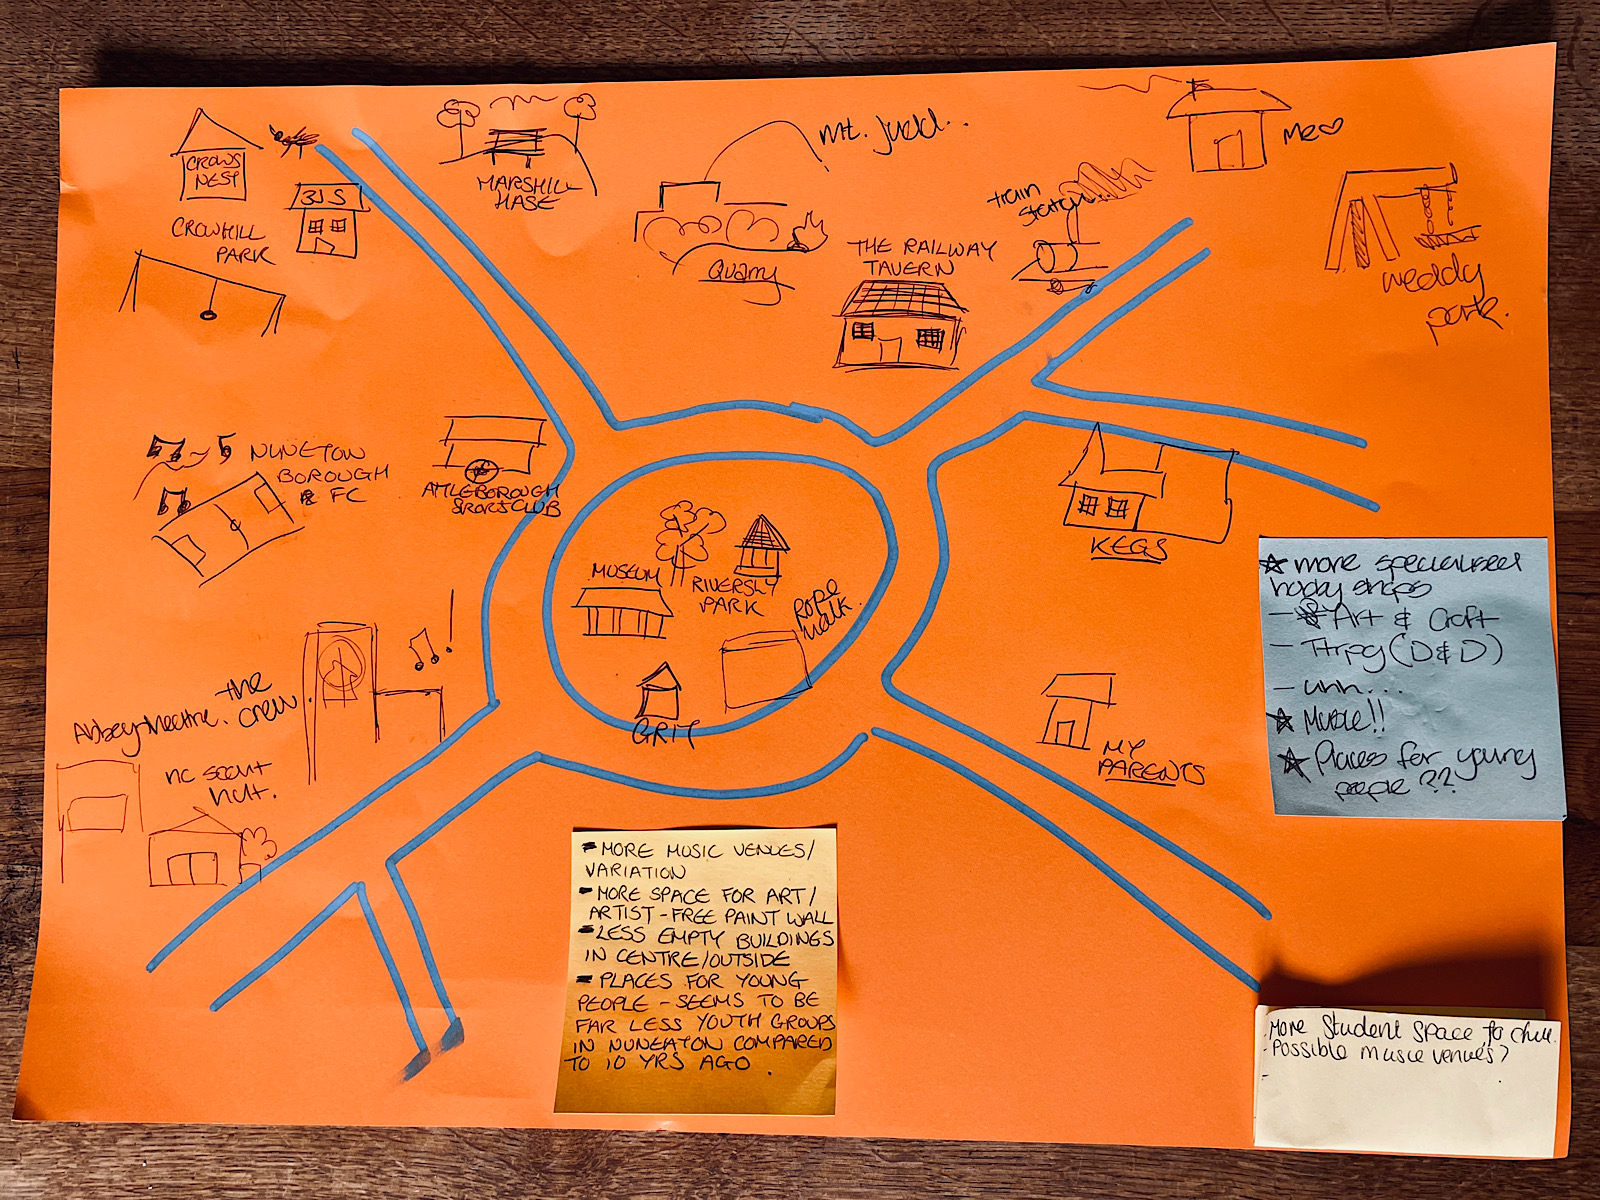 CROWS
NEST
3JS
CROWHILL
PARK
MARSHILL
HASE
Mt. Judd..
Quarry
train
THE RAILWAY
TAVERN
Me♡
weddy
park.
NUNETON
BOROUGH
FC
ATTLEBOROUGH
SPORTS CLUB
MUSEUM
RIVERSLY
PARK
ROPE
WALK
GRIT
KEGS
the
crew.
nc scout
hut.
MY
PARENTS
★ more specialised
hobby shops
- Art & Craft
- Ttrpg (D&D)
- uhh...
★ Music!!
★ Places for young
people??
- MORE MUSIC VENUES/
VARIATION
- MORE SPACE FOR ART/
ARTIST - FREE PAINT WALL
- LESS EMPTY BUILDINGS
IN CENTRE/OUTSIDE
- PLACES FOR YOUNG
PEOPLE - SEEMS TO BE
FAR LESS YOUTH GROUPS
IN NUNEATON COMPARED
TO 10 YRS AGO.
- More Student Space to chill.
- Possible music venues?
-